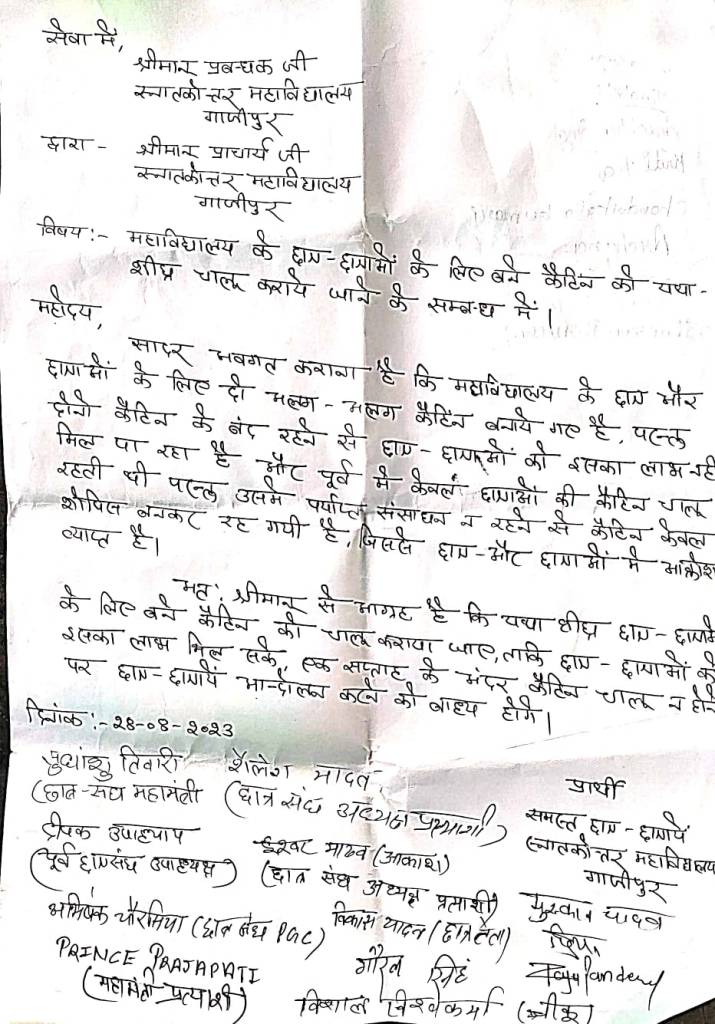 सेवा में,
श्रीमान प्रबन्धक जी
स्नातकोत्तर महाविद्यालय
गाजीपुर
द्वारा - श्रीमान प्राचार्य जी
स्नातकोत्तर महाविद्यालय
गाजीपुर
विषय:- महाविद्यालय के छात्र-छात्राओं के लिए बने कैंटिन को यथा-
शीघ्र चालू कराये जाने के सम्बन्ध में।
महोदय,
सादर अवगत कराना है कि महाविद्यालय के छात्र और
छात्राओं के लिए दो अलग-अलग कैंटिन बनाये गए है, परन्तु
दोनो कैंटिन के बंद रहने से छात्र-छात्राओं को इसका लाभ नही
मिल पा रहा है और पूर्व मे केवल छात्राओं की कैंटिन चालू
रहती थी परन्तु उसमे पर्याप्त संसाधन न रहने से कैंटिन केवल
शोपिस बनकर रह गयी है, जिससे छात्र-और छात्राओं मे आक्रोश
व्याप्त है।
अतः श्रीमान् से आग्रह है कि यथा शीघ्र छात्र-छात्राओं
के लिए बने कैंटिन को चालू कराया जाए, ताकि छात्र-छात्राओं को
इसका लाभ मिल सके, एक सप्ताह के अंदर कैंटिन चालू न होने
पर छात्र-छात्रायें आन्दोलन करने को बाध्य होंगे।
दिनांक:-28-08-2023
सुधांशु तिवारी शैलेश यादव
प्रार्थी
(छात्र-संघ महामंत्री (छात्र संघ अध्यक्ष प्रत्याशी)
समस्त छात्र-छात्रायें
दीपक उपाध्याय यादव (आकाश)
स्नातकोत्तर महाविद्यालय
(पूर्व छात्रसंघ उपाध्यक्ष) (छात्र संघ अध्यक्ष प्रत्याशी)
गाजीपुर
अभिषेक चौरसिया (छात्र संघ PGC) विकास यादव (छात्र नेता)
मुस्कान यादव
PRINCE PRAJAPATI
(महामंत्री-प्रत्याशी)
गौरव सिंह
विशाल विश्वकर्मा